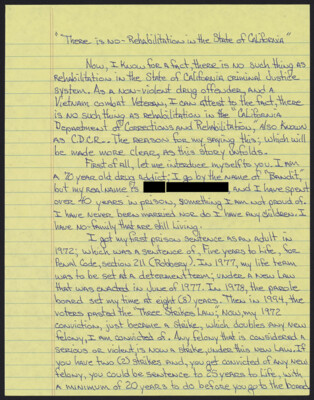 "There is no - Rehabilitation in the State of California"
Now, I know for a fact, there is no such thing as
rehabilitation in the State of California criminal Justice
system. As a non-violent drug offender, and a
Vietnam combat Veteran, I can attest to the fact, there
is no such thing as rehabilitation in the "California
Department of Corrections and Rehabilitation, Also known
as C.D.C.R.. The reason for my saying this; which will
be made more clear, as this story unfolds.
First of all, let me introduce myself to you. I am
a 70 year old drug addict; I go by the name of "Bandit",
but my real name is and I have spent
over 40 years in prison, something I am not proud of.
I have never been married nor do I have any children. I
have no family that are still living.
I got my first prison sentence as an adult in
1972; which was a sentence of, five years to life, for
Penal Code, section 211 (Robbery). In 1977, my life term
was to be set at a determent term; under a New Law
that was enacted in June of 1977. In 1978, the parole
board set my time at eight (8) years. Then in 1994, the
voters passed the Three Strikes Law; Now, my 1972
conviction, just became a strike, which doubles any new
felony, I am convicted of. Any felony that is considered a
serious or violent, is now a strike, under this new law. If
you have two (2) strikes and, you get convicted of any new
felony, you could be sentence to 25 years to Life, with
a minimum of 20 years to do before you go to the board